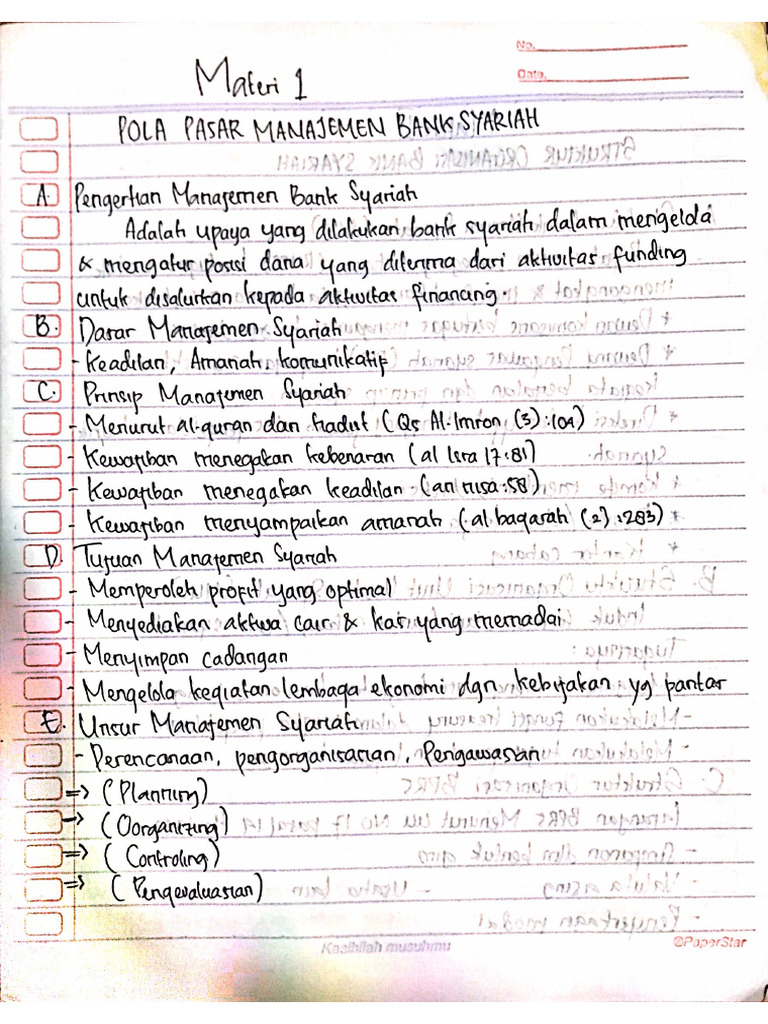 No.
Date.
Materi 1
POLA PASAR MANAJEMEN BANK SYARIAH
A. Pengertian Manajemen Bank Syariah
Adalah upaya yang dilakukan bank syariah dalam mengelola
& mengatur posisi dana yang diterima dari aktivitas funding
untuk disalurkan kepada aktivitas financing.
B. Dasar Manajemen Syariah
- Keadilan, Amanah, komunikatif
C. Prinsip Manajemen Syariah
- Menurut al-quran dan hadist (Qs Al-Imron (3):104)
- Kewajiban menegakan kebenaran (al Isra 17:81)
- Kewajiban menegakan keadilan (an nisa:58)
- Kewajiban menyampaikan amanah (al baqarah (2):283)
D. Tujuan Manajemen Syariah
- Memperoleh profit yang optimal
- Menyediakan aktiva cair & kas yang memadai
- Menyimpan cadangan
- Mengelola kegiatan lembaga ekonomi dgn kebijakan yg pantar
E. Unsur Manajemen Syariah
- Perencanaan, pengorganisasian, Pengawasan
=> (Planning)
=> (Oorganizing)
=> (Controling)
=> (Pengevaluasian)
Kasihilah musuhmu
©PaperStar